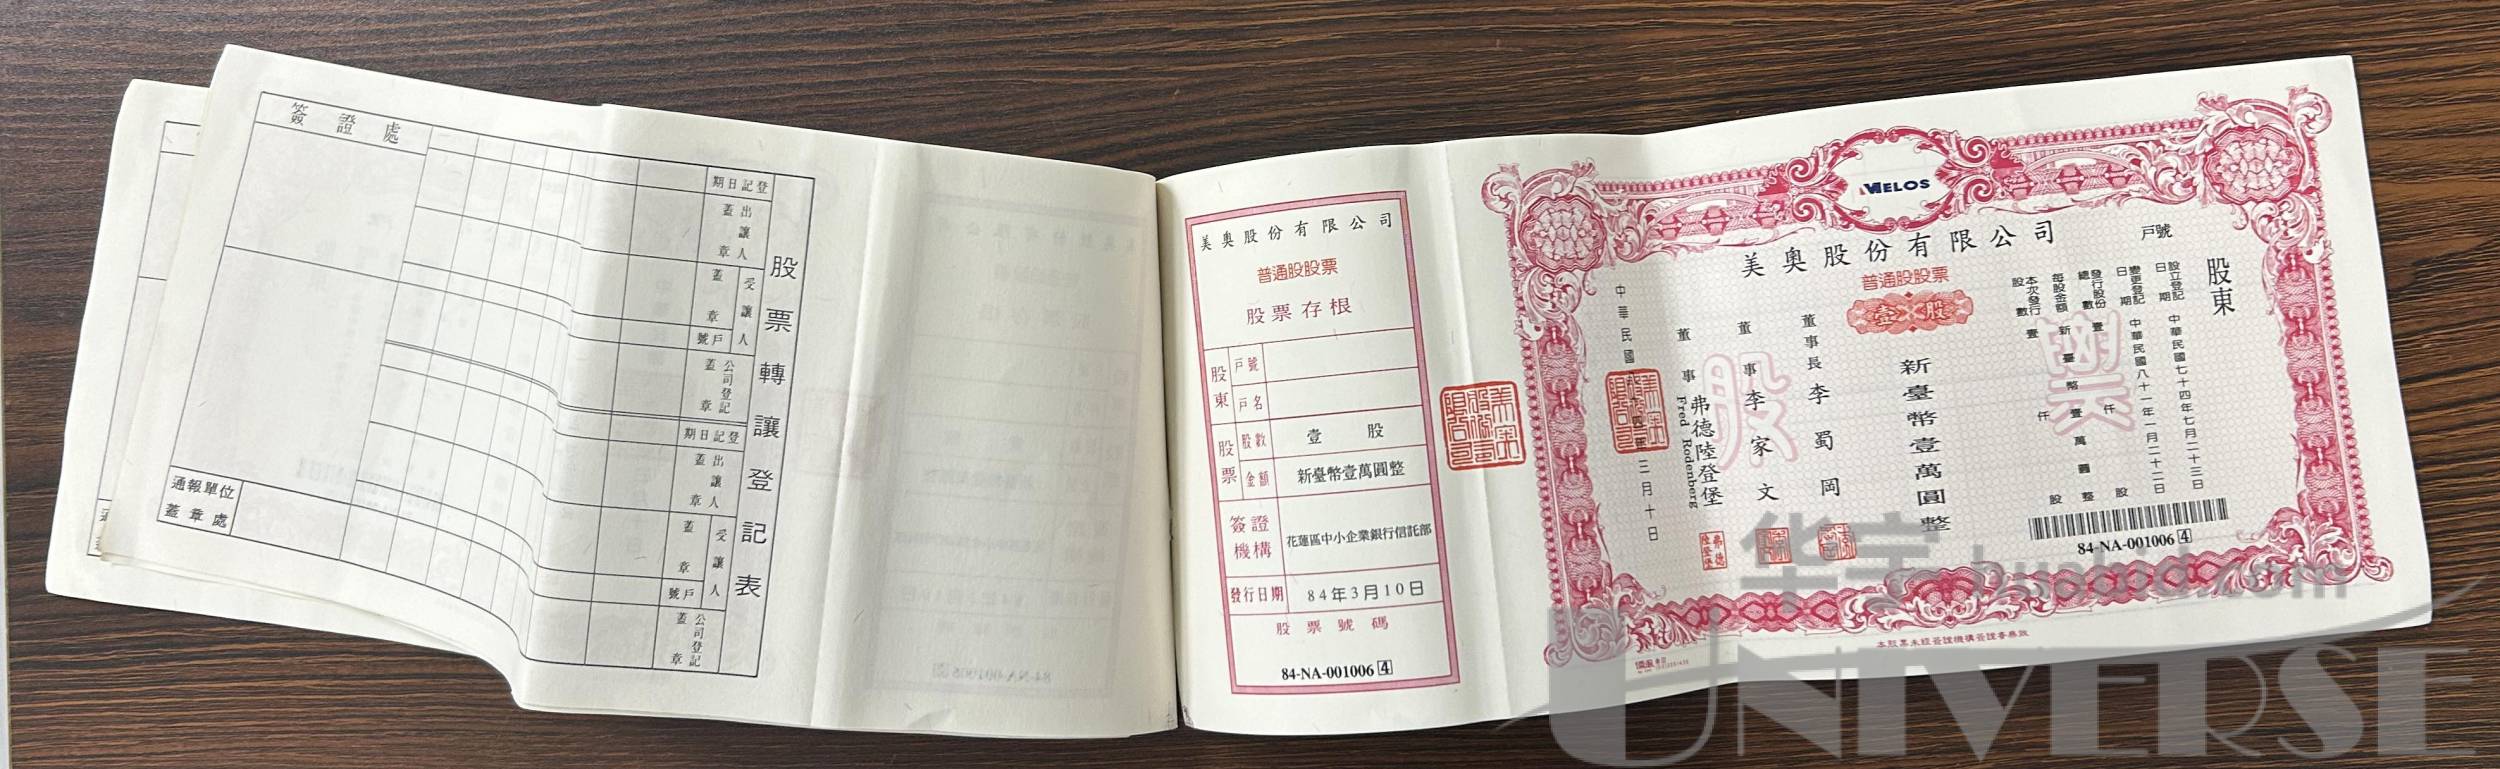 股票轉讓登記表
登記日期
出讓人
蓋章
受讓人
蓋章
戶號
公司登記
蓋章
登記日期
出讓人
蓋章
受讓人
蓋章
戶號
公司登記
蓋章
簽證處
通報單位
蓋章處
美奧股份有限公司
普通股股票
股票存根
股東
戶號
戶名
股票
股數
壹 股
金額
新臺幣壹萬圓整
簽證
機構
花蓮區中小企業銀行信託部
發行日期
84年3月10日
股票號碼
84-NA-001006 4
MELOS
美奧股份有限公司
普通股股票
壹 股
戶號
股東
設立登記日期 中華民國七十四年七月二十三日
變更登記日期 中華民國八十一年一月二十二日
發行股份總數 壹仟股
每股金額 新臺幣壹萬圓整
本次發行股數 壹仟股
股票
新臺幣壹萬圓整
董事長 李蜀岡
董事 李家文
董事 弗德陸登堡
Fred Rodenberg
弗德陸登堡
中華民國八十四年三月十日
84-NA-001006 4
本股票未經簽證機構簽證者無效
华宇 huabid.com
UNIVERSE